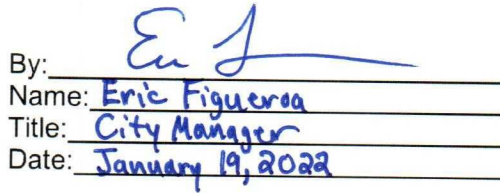 By:
Name: Eric Figueroa
Title: City Manager
Date: January 19, 2022